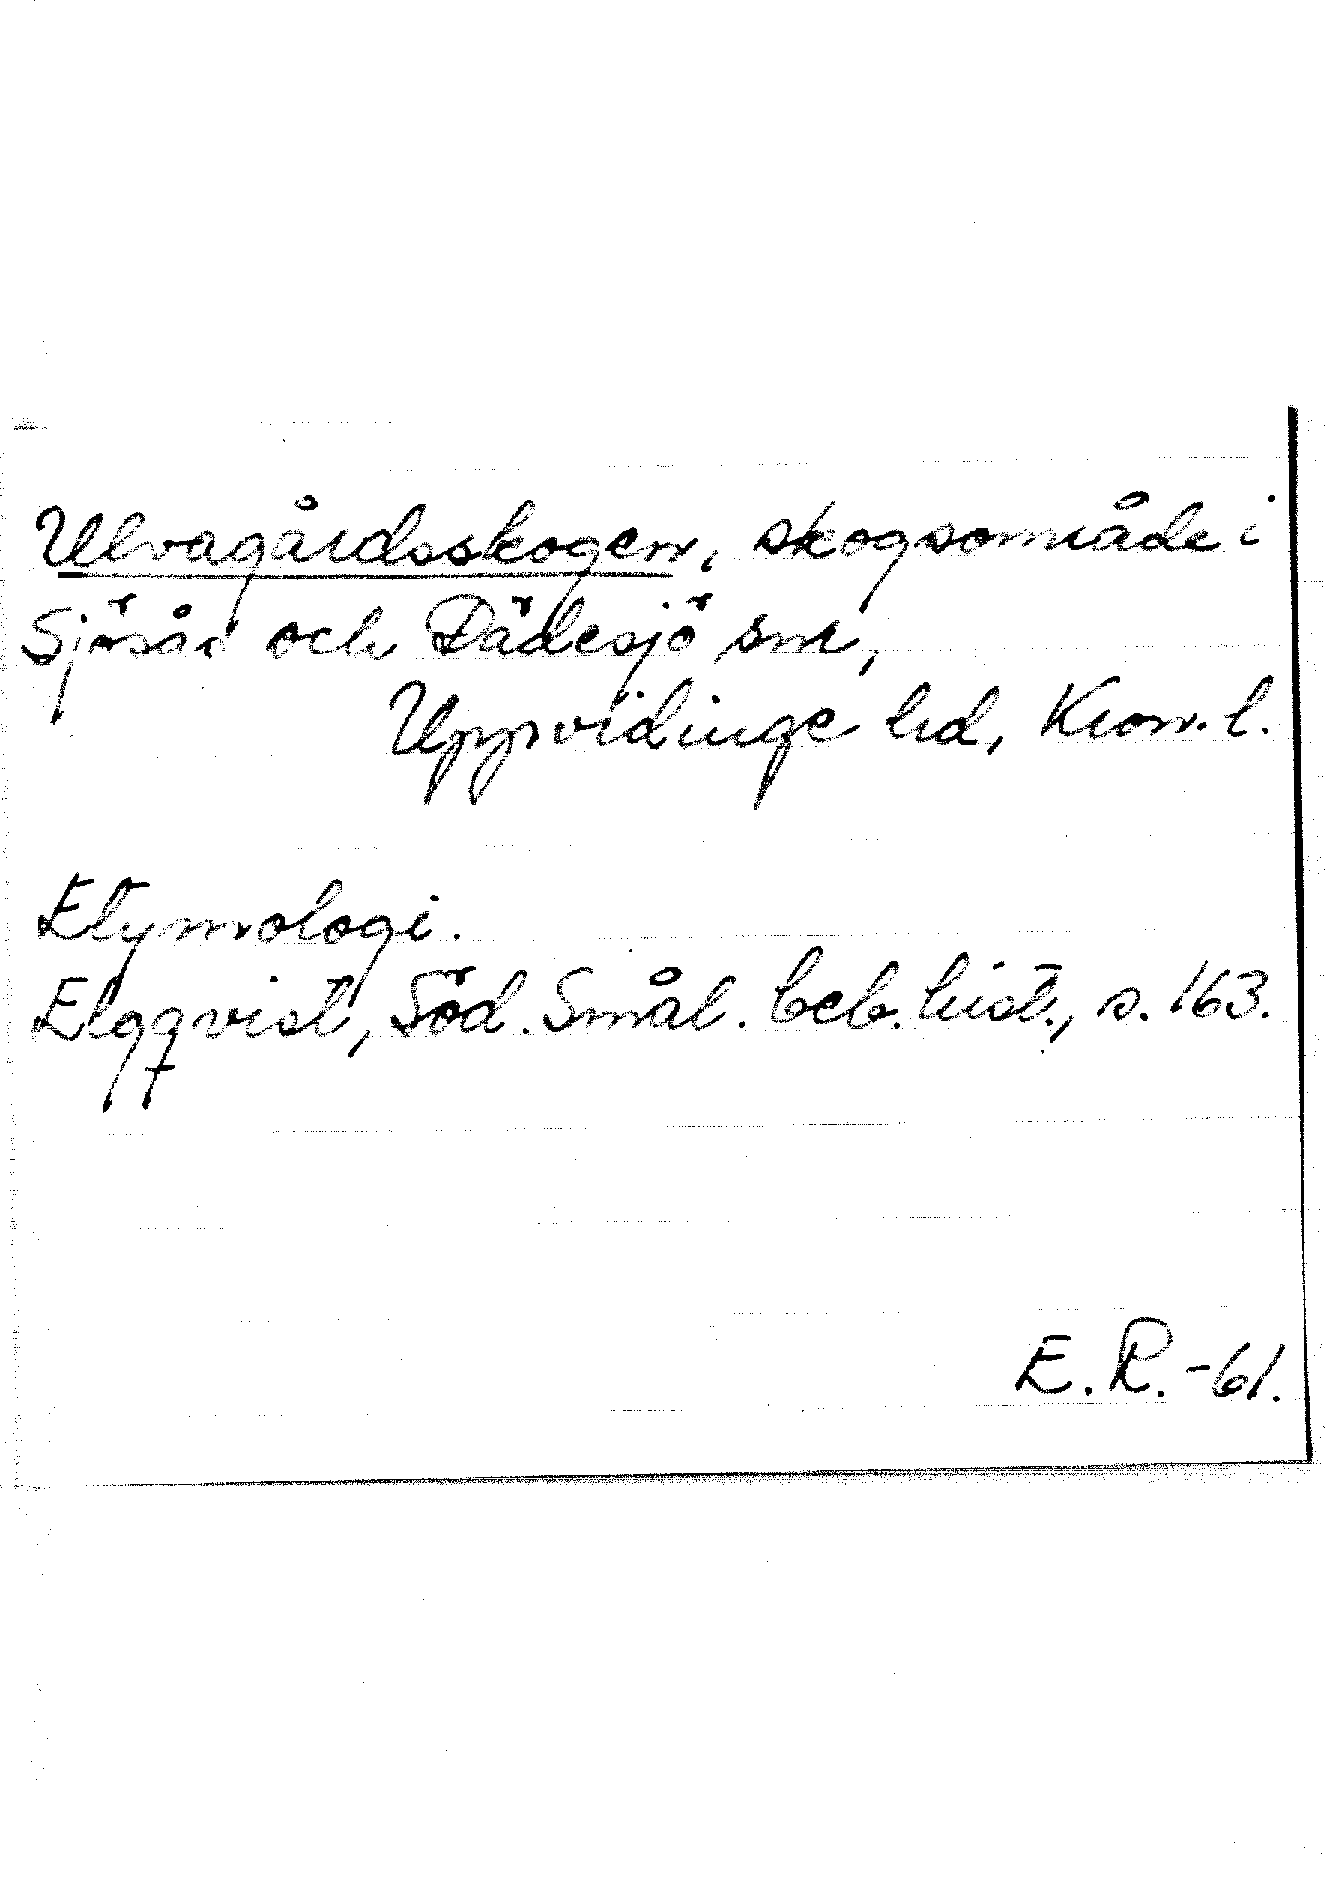 Ulvagårdsskogen, skogsområde i
Sjösås och Dädesjö snr,
Uppvidinge hd, Kron. l.
Etymologi.
Elgqvist, Söd. Smål. beb. hist., s. 163.
E. R. -61.